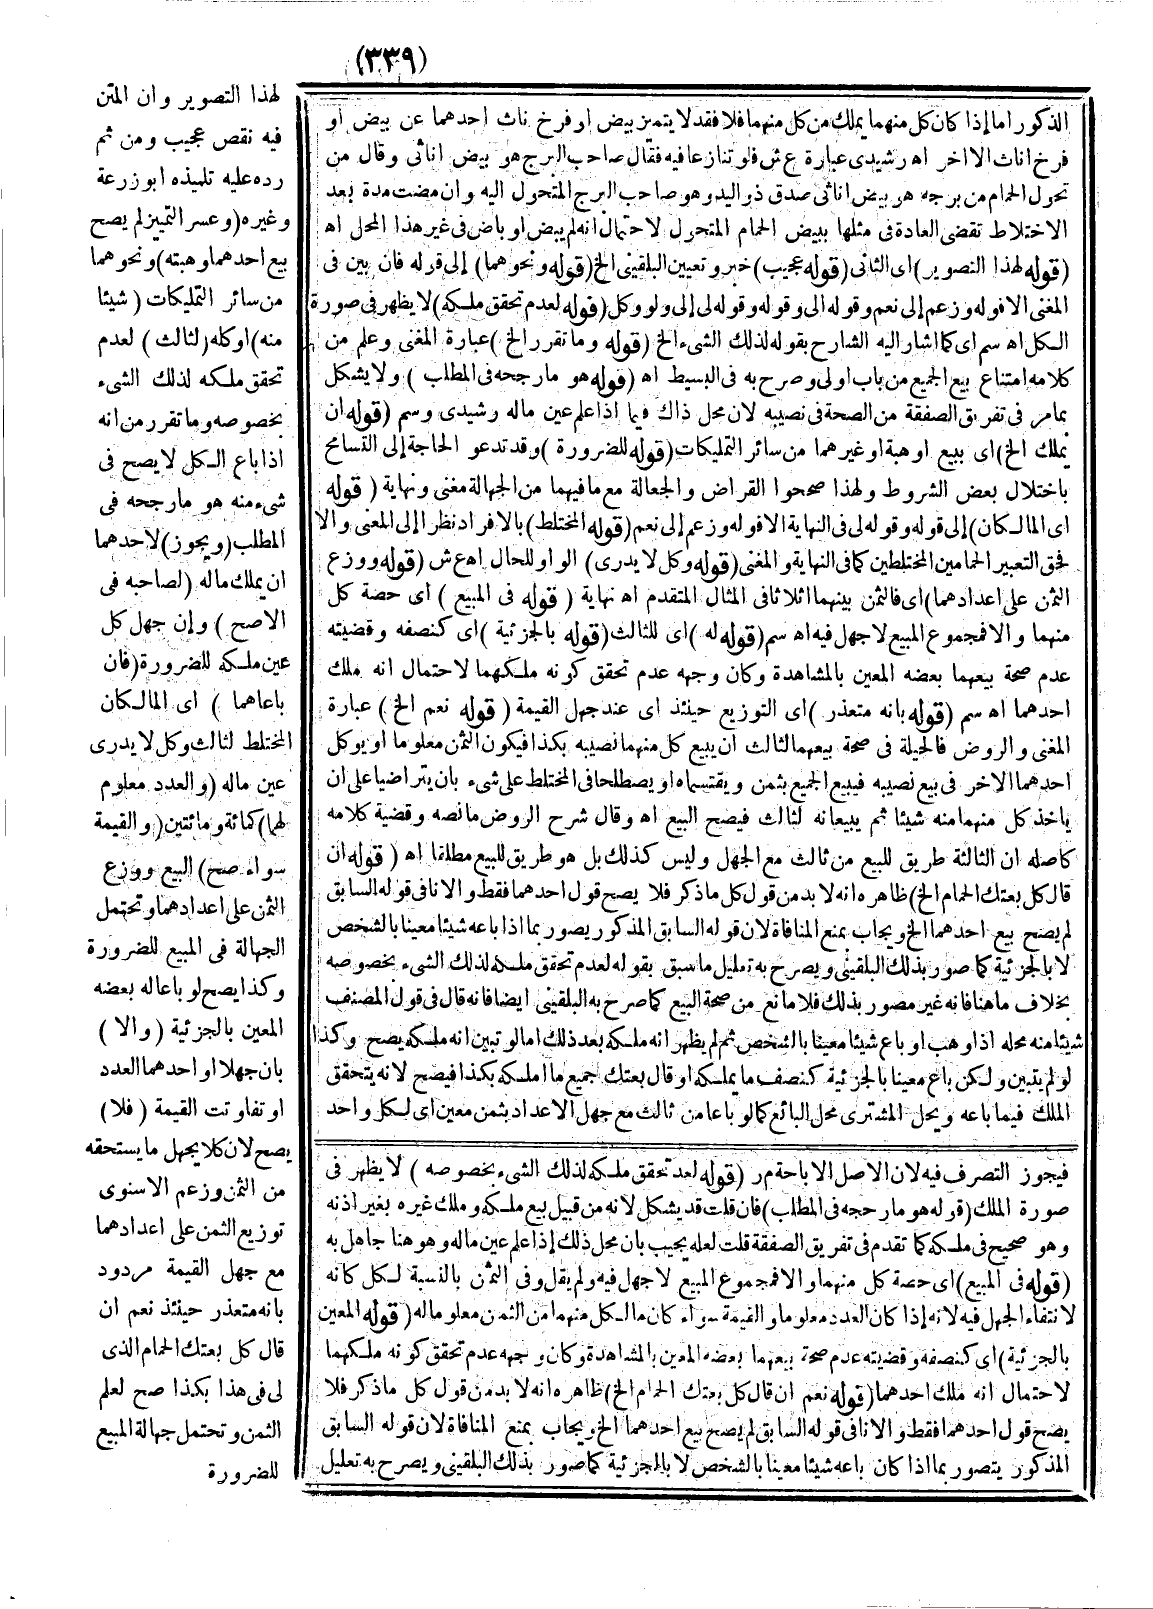 (٣٣٩)
لهذا التصوير وان المتن
فيه نقص عجيب ومن ثم
رده عليه تلميذه ابو زرعة
وغيره (وعسر التميز لم يصح
بيع احدهما وهبته) ونحوهما
من سائر التمليكات (شيئا
منه) او كله (لثالث) لعدم
تحقق ملكه لذلك الشىء
بخصوصه وما تقرر من انه
اذا باع الكل لا يصح فى
شىء منه هو ما رجحه فى
المطلب (ويجوز) لاحدهما
ان يملك ماله (لصاحبه فى
الاصح) وإن جهل كل
عين ملكه للضرورة (فان
باعاهما) اى المالكان
المختلط لثالث وكل لا يدرى
عين ماله (والعدد معلوم
لهما) كمائة ومائتين (والقيمة
سواء صح) البيع ووزع
الثمن على اعدادهما وتحتمل
الجهالة فى المبيع للضرورة
وكذا يصح لو باعا له بعضه
المعين بالجزئية (والا)
بان جهلا او احدهما العدد
او تفاوتت القيمة (فلا)
يصح لان كلا يجهل ما يستحقه
من الثمن وزعم الاسنوى
توزيع الثمن على اعدادهما
مع جهل القيمة مردود
بانه متعذر حينئذ نعم ان
قال كل بعتك الحمام الذى
لى فى هذا بكذا صح لعلم
الثمن وتحتمل جهالة المبيع
للضرورة
الذكور اما إذا كان كل منهما يملك من كل منهما فلا فقد لا يتميز بيض او فرخ ناث احدهما عن بيض او
فرخ اناث الاخر اه رشيدى عبارة ع ش فلو تنازعا فيه فقال صاحب البرج هو بيض اناثى وقال من
تحول الحمام من برجه هو بيض اناثى صدق ذو اليد وهو صاحب البرج المتحول اليه وان مضت مدة بعد
الاختلاط تقضى العادة فى مثلها ببيض الحمام المتحول لاحتمال انه لم يبض او باض فى غير هذا المحل اه
(قوله لهذا التصوير) اى الثانى (قوله عجيب) خبر وتعيين البلقينى الخ (قوله ونحوهما) إلى قوله فان بين فى
المغنى الا قوله وزعم إلى نعم وقوله الى وقوله وقوله لى إلى ولو وكل (قوله لعدم تحقق ملكه) لا يظهر فى صورة
الكل اه سم اى كما اشار اليه الشارح بقوله لذلك الشىء الخ (قوله وما تقرر الخ) عبارة المغنى وعلم من
كلامه امتناع بيع الجميع من باب اولى وصرح به فى البسيط اه (قوله هو ما رجحه فى المطلب) ولا يشكل
بما مر فى تفريق الصفقة من الصحة فى نصيبه لان محل ذاك فيما اذا علم عين ماله رشيدى وسم (قوله ان
يملك الخ) اى ببيع او هبة او غيرهما من سائر التمليكات (قوله للضرورة) وقد تدعو الحاجة إلى التسامح
باختلال بعض الشروط ولهذا صححوا القراض والجعالة مع ما فيهما من الجهالة مغنى ونهاية (قوله
اى المالكان) إلى قوله وقوله لى فى النهاية الا قوله وزعم إلى نعم (قوله المختلط) بالافراد نظرا إلى المعنى والا
فحق التعبير الحمامين المختلطين كما فى النهاية والمغنى (قوله وكل لا يدرى) الواو للحال اه ع ش (قوله ووزع
الثمن على اعدادهما) اى فالثمن بينهما اثلاثا فى المثال المتقدم اه نهاية (قوله فى المبيع) اى حصة كل
منهما والا فمجموع المبيع لا جهل فيه اه سم (قوله له) اى للثالث (قوله بالجزئية) اى كنصفه وقضيته
عدم صحة بيعهما بعضه المعين بالمشاهدة وكان وجهه عدم تحقق كونه ملكهما لاحتمال انه ملك
احدهما اه سم (قوله بانه متعذر) اى التوزيع حينئذ اى عند جهل القيمة (قوله نعم الخ) عبارة
المغنى والروض فالحيلة فى صحة بيعهما لثالث ان يبيع كل منهما نصيبه بكذا فيكون الثمن معلوما او يوكل
احدهما الاخر فى بيع نصيبه فيبيع الجميع بثمن ويقتسماه او يصطلحا فى المختلط على شىء بان يتراضيا على ان
ياخذ كل منهما منه شيئا ثم يبيعانه لثالث فيصح البيع اه وقال شرح الروض ما نصه وقضية كلامه
كاصله ان الثالثة طريق للبيع من ثالث مع الجهل وليس كذلك بل هو طريق للبيع مطلقا اه (قوله ان
قال كل بعتك الحمام الخ) ظاهره انه لا بد من قول كل ما ذكر فلا يصح قول احدهما فقط والا نافى قوله السابق
لم يصح بيع احدهما الخ ويجاب بمنع المنافاة لان قوله السابق المذكور يصور بما اذا باعه شيئا معينا بالشخص
لا بالجزئية كما صور بذلك البلقينى ويصرح به تعليل ما سبق بقوله لعدم تحقق ملكه لذلك الشىء بخصوصه
بخلاف ما هنا فانه غير مصور بذلك فلا مانع من صحة البيع كما صرح به البلقينى ايضا فانه قال فى قول المصنف
شيئا منه محله اذا وهب او باع شيئا معينا بالشخص ثم لم يظهر انه ملكه بعد ذلك اما لو تبين انه ملكه يصح وكذا
لو لم يتبين ولكن باع معينا بالجزئية كنصف ما يملكه او قال بعتك جميع ما املكه بكذا فيصح لانه يتحقق
الملك فيما باعه ويحل المشترى محل البائع كما لو باعا من ثالث مع جهل الاعداد بثمن معين اى لكل واحد
فيجوز التصرف فيه لان الاصل الاباحة م ر (قوله لعد تحقق ملكه لذلك الشىء بخصوصه) لا يظهر فى
صورة الملك (قوله هو ما رجحه فى المطلب) فان قلت قد يشكل لانه من قبيل بيع ملكه وملك غيره بغير اذنه
وهو صحيح فى ملكه كما تقدم فى تفريق الصفقة قلت لعله يجيب بان محل ذلك إذا علم عين ماله وهو هنا جاهل به
(قوله فى المبيع) اى حصة كل منهما والا فمجموع المبيع لا جهل فيه ولم يقل وفى الثمن بالنسبة لكل كانه
لانتفاء الجهل فيه لانه إذا كان العدد معلوما والقيمة سواء كان ما لكل منهما من الثمن معلوما له (قوله المعين
بالجزئية) اى كنصفه وقضيته عدم صحة بيعهما بعضه المعين بالمشاهدة وكان وجهه عدم تحقق كونه ملكهما
لاحتمال انه ملك احدهما (قوله نعم ان قال كل بعتك الحمام الخ) ظاهره انه لا بد من قول كل ما ذكر فلا
يصح قول احدهما فقط والا نافى قوله السابق لم يصح بيع احدهما الخ ويجاب بمنع المنافاة لان قوله السابق
المذكور يتصور بما اذا كان باعه شيئا معينا بالشخص لا بالجزئية كما صور بذلك البلقينى ويصرح به تعليل